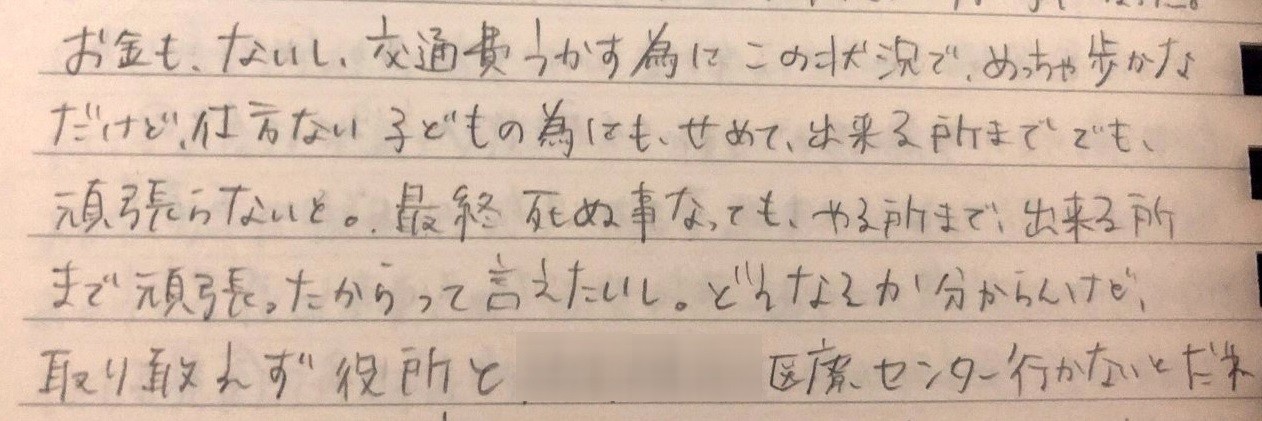 お金も、ないし、交通費うかす為にこの状況で、めっちゃ歩かな
だけど、仕方ない子どもの為にも、せめて、出来る所まででも、
頑張らないと。最終死ぬ事なっても、やる所まで、出来る所
まで頑張ったからって言えたいし。どうなるか分からんけど、
取り敢えず役所と 医療、センター行かないとだね